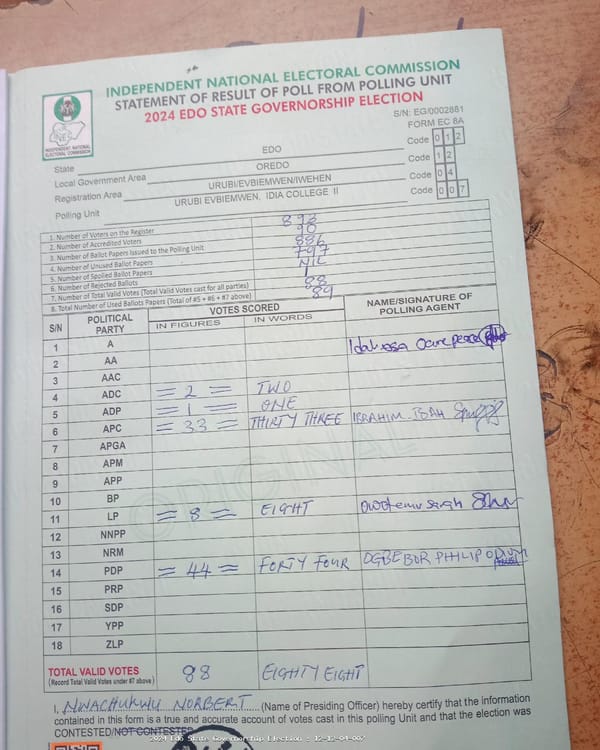 INDEPENDENT NATIONAL ELECTORAL COMMISSION
STATEMENT OF RESULT OF POLL FROM POLLING UNIT
2024 EDO STATE GOVERNORSHIP ELECTION
INDEPENDENT NATIONAL ELECTORAL COMMISSION
S/N: EG/0002881
FORM EC 8A
State EDO Code 0 1 2
Local Government Area OREDO Code 1 2
Registration Area URUBI/EVBIEMWEN/IWEHEN Code 0 4
Polling Unit URUBI EVBIEMWEN, IDIA COLLEGE II Code 0 0 7
1. Number of Voters on the Register 893
2. Number of Accredited Voters 90
3. Number of Ballot Papers Issued to the Polling Unit 886
4. Number of Unused Ballot Papers 797
5. Number of Spoiled Ballot Papers NIL
6. Number of Rejected Ballots 1
7. Number of Total Valid Votes (Total Valid Votes cast for all parties) 88
8. Total Number of Used Ballots Papers (Total of #5 + #6 + #7 above) 89
S/N POLITICAL PARTY VOTES SCORED NAME/SIGNATURE OF POLLING AGENT
IN FIGURES IN WORDS
1 A
2 AA
3 AAC
4 ADC = 2 = TWO
5 ADP = 1 = ONE
6 APC = 33 = THIRTY THREE IBRAHIM
7 APGA
8 APM
9 APP
10 BP
11 LP = 8 = EIGHT
12 NNPP
13 NRM
14 PDP = 44 = FORTY FOUR OGBEBOR PHILIP
15 PRP
16 SDP
17 YPP
18 ZLP
ORIGINAL
TOTAL VALID VOTES 88 EIGHTY EIGHT
(Record Total Valid Votes under #7 above)
I, NWACHUKWU NORBERT (Name of Presiding Officer) hereby certify that the information
contained in this form is a true and accurate account of votes cast in this polling Unit and that the election was
CONTESTED/NOT CONTESTED
2024 Edo State Governorship Election - 12-12-04-007